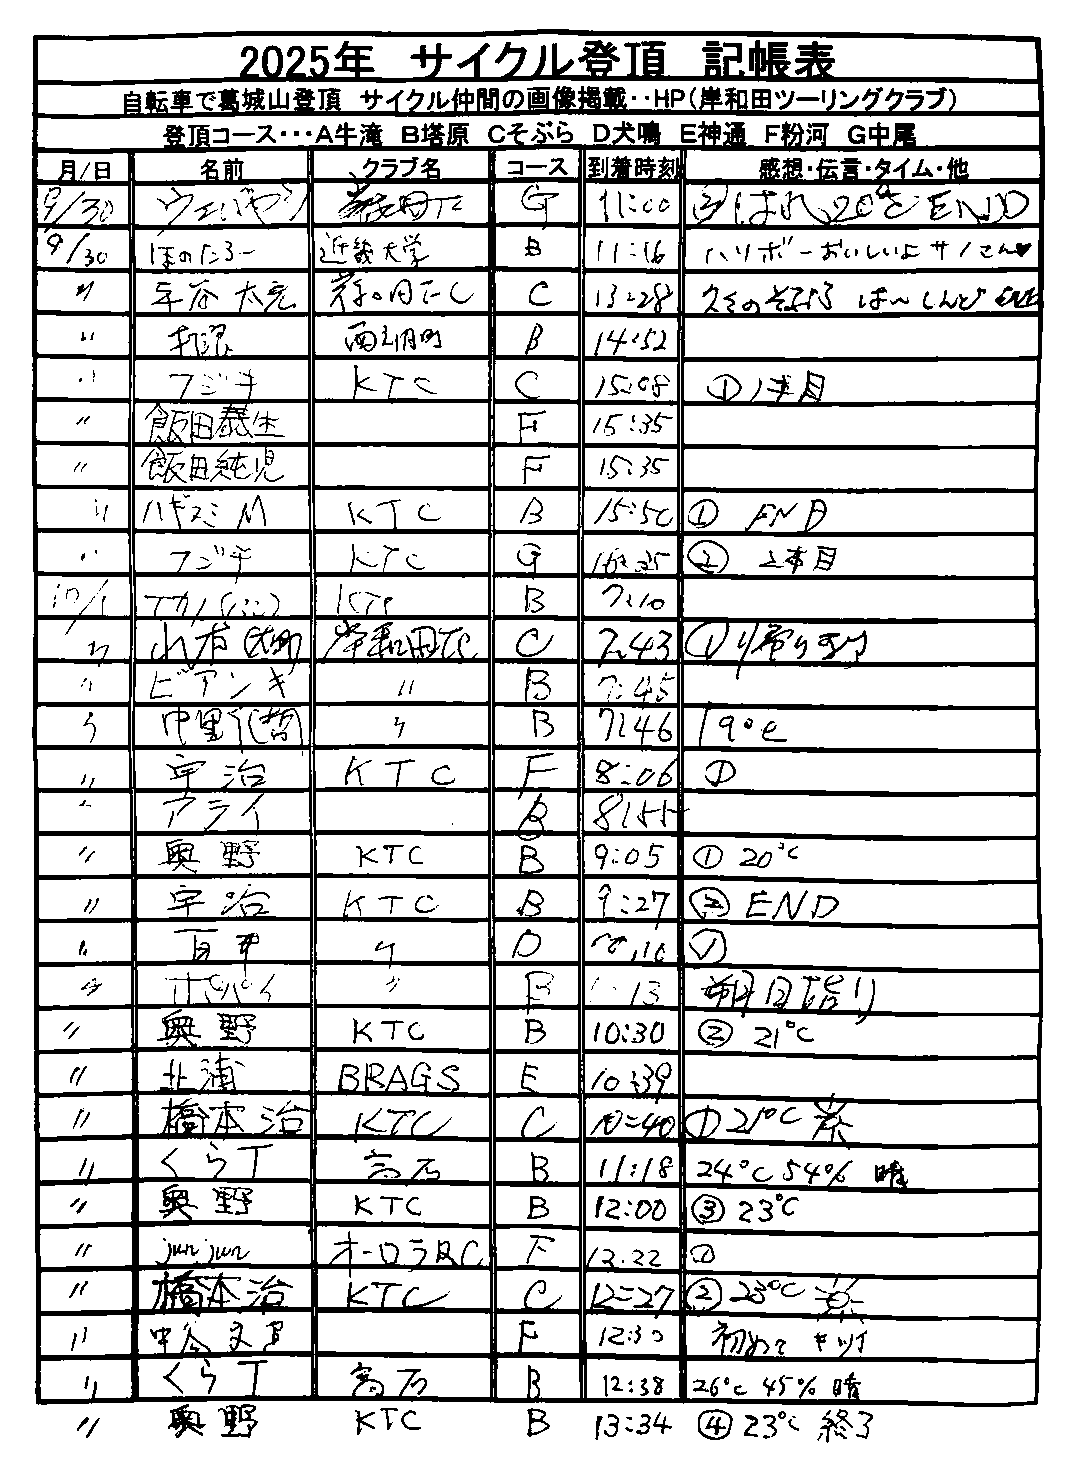 2025年 サイクル登頂 記帳表
自転車で葛城山登頂 サイクル仲間の画像掲載‥HP(岸和田ツーリングクラブ)
登頂コース・・・A牛滝 B塔原 Cそぶら D犬鳴 E神通 F粉河 G中尾
月/日 名前 クラブ名 コース 到着時刻 感想・伝言・タイム・他
9/30 G 11:00 END
9/30 近畿大学 B 11:16 ハリボーおいしいよ
〃 C 13:28
〃 B 14:52
〃 フジキ KTC C 15:08 ① 1本目
〃 飯田泰生 F 15:35
〃 飯田純児 F 15:35
〃 ハギスミM KTC B ① END
〃 フジキ KTC G 16:35 ② 2本目
10/1 B 7:10
〃 岸和田TC C 7:43 ①
〃 ビアンキ 〃 B 7:45
〃 〃 B 7:46 19℃
〃 宇治 KTC F 8:06 ①
〃 アライ B
〃 奥野 KTC B 9:05 ① 20℃
〃 宇治 KTC B 9:27 ② END
〃 百井 〃 D ①
〃 ポパイ 〃 朔日詣り
〃 奥野 KTC B 10:30 ② 21℃
〃 北浦 BRAGS E 10:39
〃 橋本治 KTC C 10=40 ① 21℃
〃 くらT 高石 B 11:18 24℃ 54% 晴
〃 奥野 KTC B 12:00 ③ 23℃
〃 junjun オーロラBC F ①
〃 橋本治 KTC C 12=27 ② 23℃
〃 F 12:30 初めて キツイ
〃 くらT 高石 B 12:38 26℃ 45% 晴
〃 奥野 KTC B 13:34 ④ 23℃ 終了